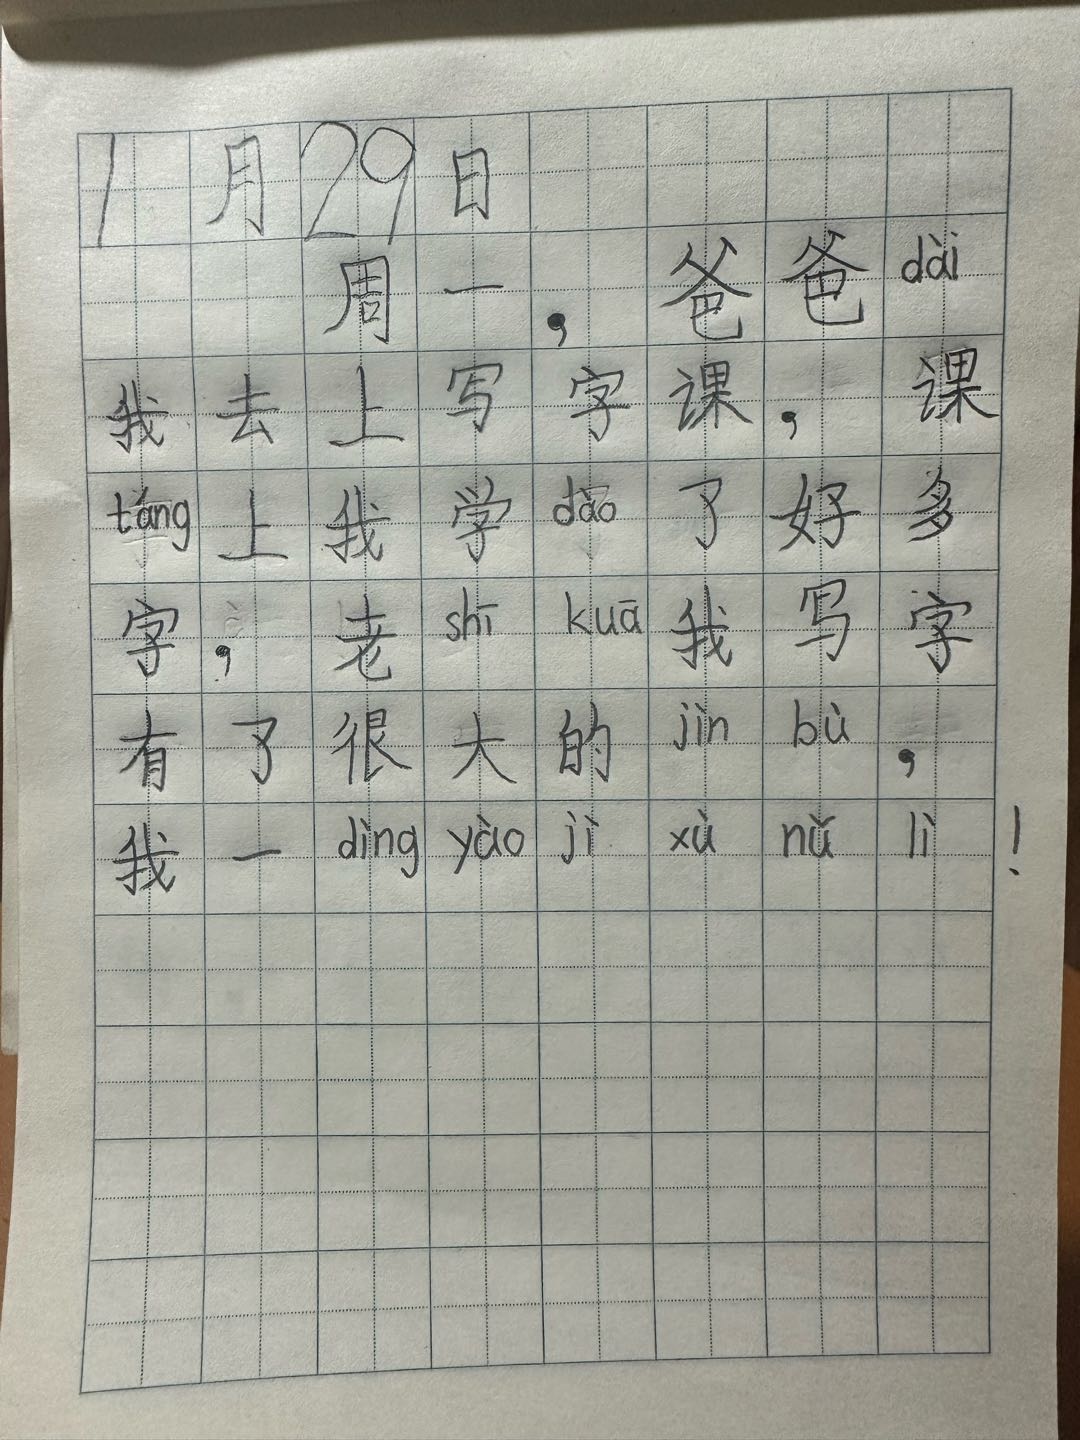 1月29日
周一,爸爸dài
我去上写字课,课
táng上我学dào了好多
字,老shī kuā我写字
有了很大的jìn bù,
我一dìng yào jì xù nǔ lì!